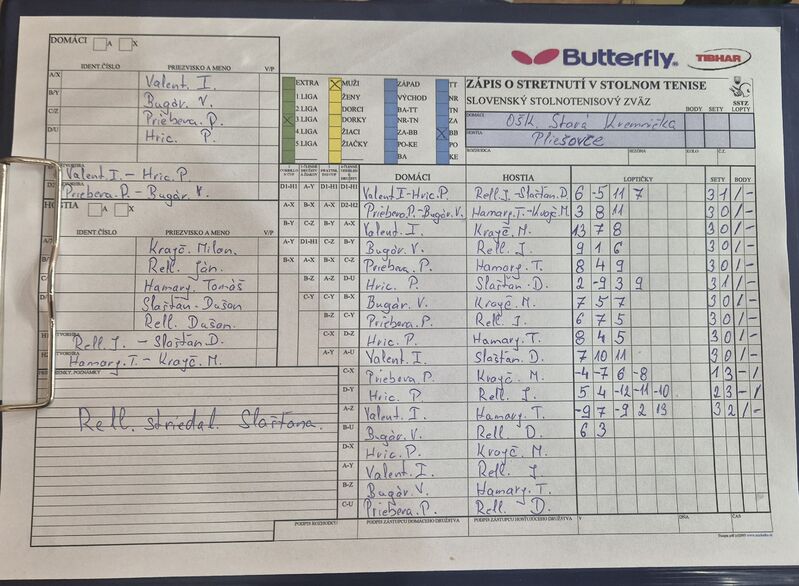 DOMÁCI A X
IDENT.ČÍSLO PRIEZVISKO A MENO V/P
A/X Valent. I.
B/Y Bugár. V.
C/Z Priebera. P.
D/U Hric. P.
Valent I. - Hric. P.
Priebera. P. - Bugár. V.
HOSTIA A X
IDENT.ČÍSLO PRIEZVISKO A MENO V/P
Krayč. Milan.
Rell. Ján.
Hamary. Tomáš
Slaštan. Dušan
Rell. Dušan.
Rell. J. - Slaštan. D.
Hamary. T. - Krayč. M.
POZNÁMKY
Rell. striedal. Slaštana.
Butterfly
TIBHAR
EXTRA MUŽI ZÁPAD TT
1.LIGA ŽENY VÝCHOD NR
2.LIGA DORCI BA-TT TN
3.LIGA DORKY TN-ZA ZA
4.LIGA ŽIACI ZA-BB BB
5.LIGA ŽIAČKY PO-KE PO
BA KE
ZÁPIS O STRETNUTÍ V STOLNOM TENISE
SLOVENSKÝ STOLNOTENISOVÝ ZVÄZ
BODY SETY LOPTY
SSTZ
DOMÁCI OŠK. Stará Kremnička
HOSTIA Pliešovce
ROZHODCA SEZÓNA KOLO Č.
DOMÁCI HOSTIA LOPTIČKY SETY BODY
D1-H1 A-Y D1-H1 D1-H1 Valent I-Hric.P. Rell.J.-Slaštan.D. 6 -5 11 7 3 1 / -
A-X B-X A-X D2-H2 Priebera.P.-Bugár.V. Hamary.T.-Krayč.M. 3 8 11 3 0 / -
B-Y C-Z B-Y A-X Valent. I. Krayč. M. 13 7 8 3 0 / -
A-Y D1-H1 C-Z B-Y Bugár. V. Rell. J. 9 1 6 3 0 / -
B-X A-X B-X C-Z Priebera. P. Hamary. T. 8 4 9 3 0 / -
B-Z A-Z D-U Hric. P. Slaštan. D. 2 -9 3 9 3 1 / -
C-Y C-Y B-X Bugár. V. Krayč. M. 7 5 7 3 0 / -
B-Z C-Y Priebera. P. Rell. J. 6 7 5 3 0 / -
C-X D-Z Hric. P. Hamary. T. 8 4 5 3 0 / -
A-Y A-U Valent. I. Slaštan. D. 7 10 11 3 0 / -
C-X Priebera. P. Krayč. M. -4 -7 6 -8 1 3 - / 1
D-Y Hric. P. Rell. J. 5 4 -12 -11 -10 2 3 - / 1
A-Z Valent. I. Hamary. T. -9 7 -9 2 13 3 2 / -
B-U Bugár. V. Rell D. 6 3
D-X Hric. P. Krayč. M.
A-Y Valent. I. Rell. J.
B-Z Bugár. V. Hamary. T.
C-U Priebera. P. Rell. D.
PODPIS ROZHODCU PODPIS ZÁSTUPCU DOMÁCEHO DRUŽSTVA PODPIS ZÁSTUPCU HOSŤUJÚCEHO DRUŽSTVA V DŇA ČAS